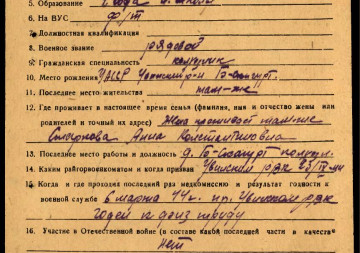 5. Образование
6. На ВУС
7. Должностная квалификация
8. Военное звание рядовой
9. Гражданская специальность колхозник
10. Место рождения УАССР Увинский р-н
11. Последнее место жительства там-же
12. Где проживает в настоящее время семья (фамилия, имя и отчество жены или
родителей и точный их адрес) Жена проживает там-же
Смирнова Анна Константиновна
13. Последнее место работы и должность
14. Каким райгорвоенкоматом и когда призван Увинский рвк
15. Когда и где проходил последний раз медкомиссию и результат годности к
военной службе 6 марта 44 г. Увинском рвк
годен к физ труду
16. Участие в Отечественной войне (в составе какой последней части в качестве
нет